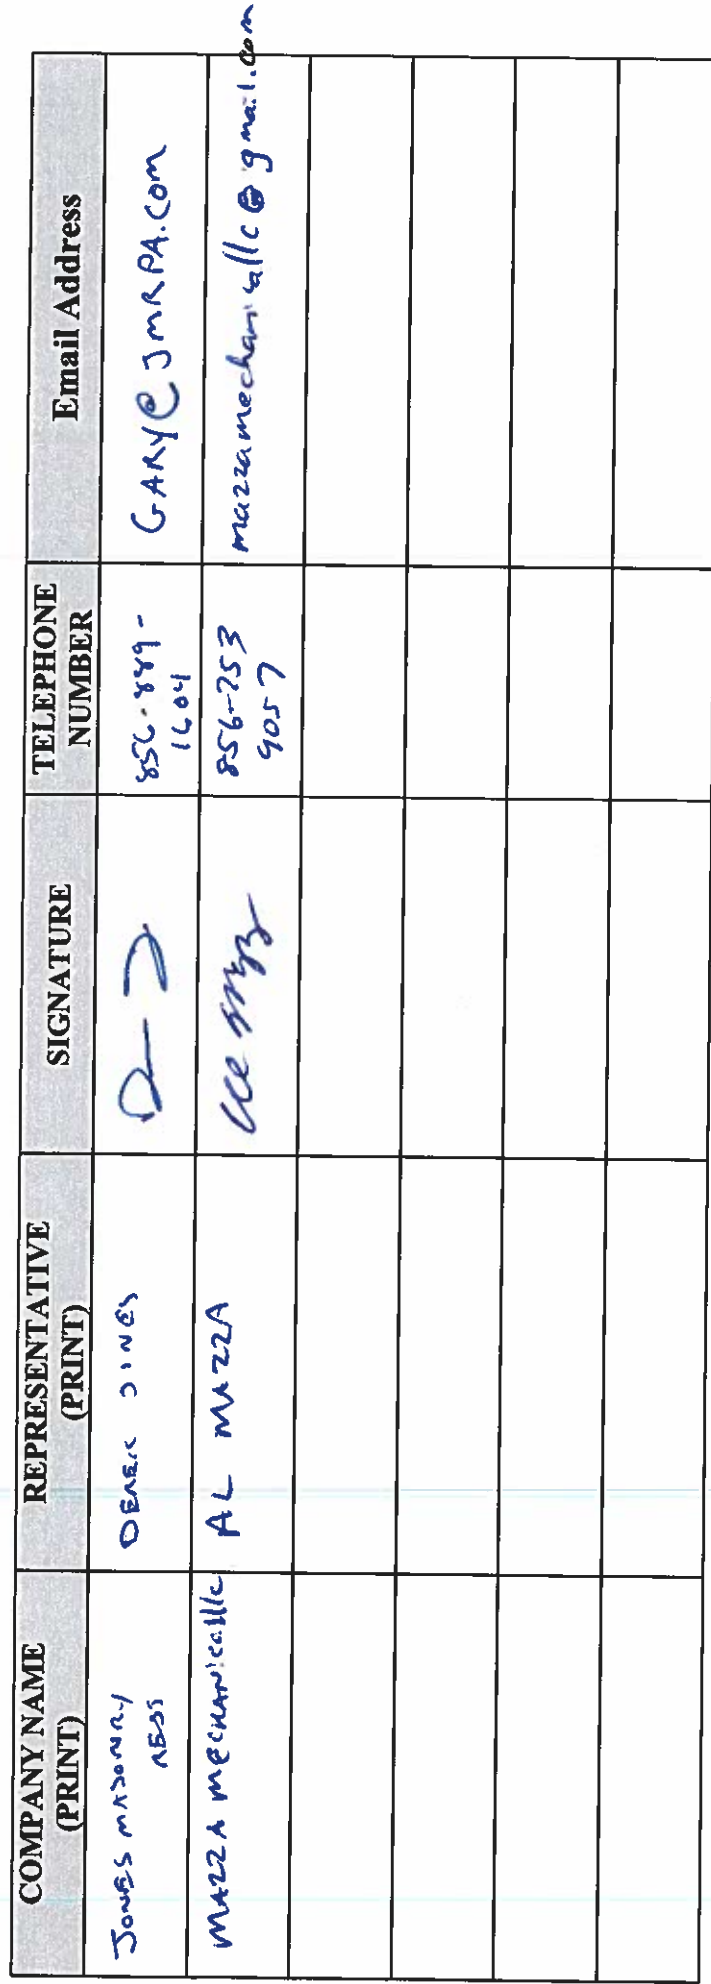 COMPANY NAME
(PRINT)
REPRESENTATIVE
(PRINT)
SIGNATURE
TELEPHONE
NUMBER
Email Address
JONES MASONRY
REST
DEREK JINES
856-889-
1604
GARY@JMRPA.COM
MAZZA MECHANICALLLC
AL MAZZA
856-753
9057
mazzamechanicalllc@gmail.com